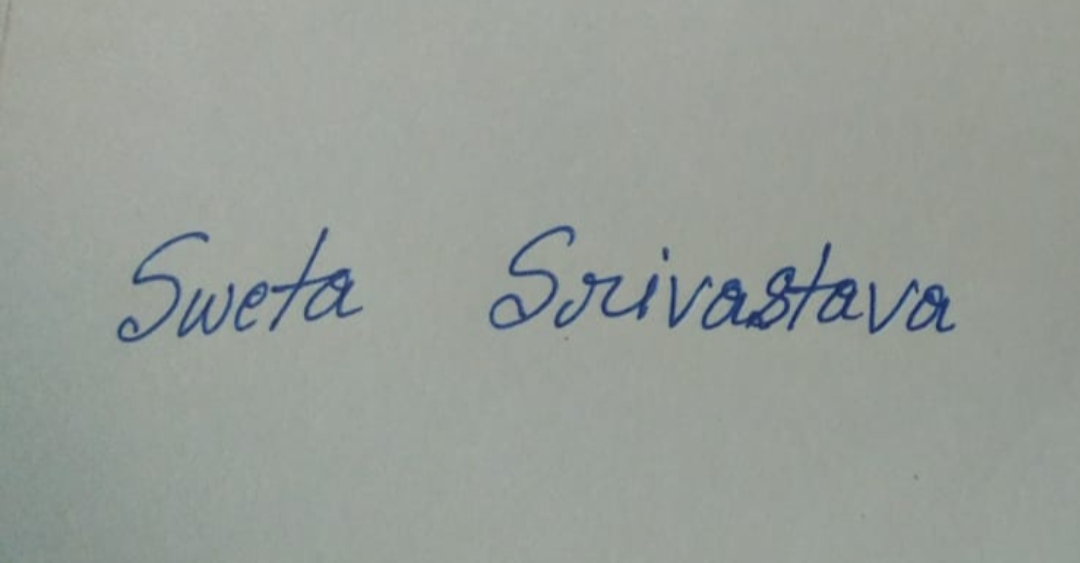 Sweta Srivastava